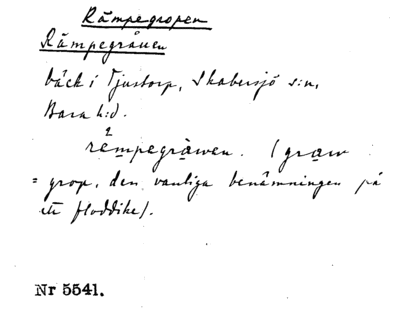 Rämpegropen
Rämpegråven
bäck i Tjustorp, Skabersjö s:n,
Bara h:d.
2
rempegrawen. (graw
= grop, den vanliga benämningen på
ett floddike).
Nr 5541.